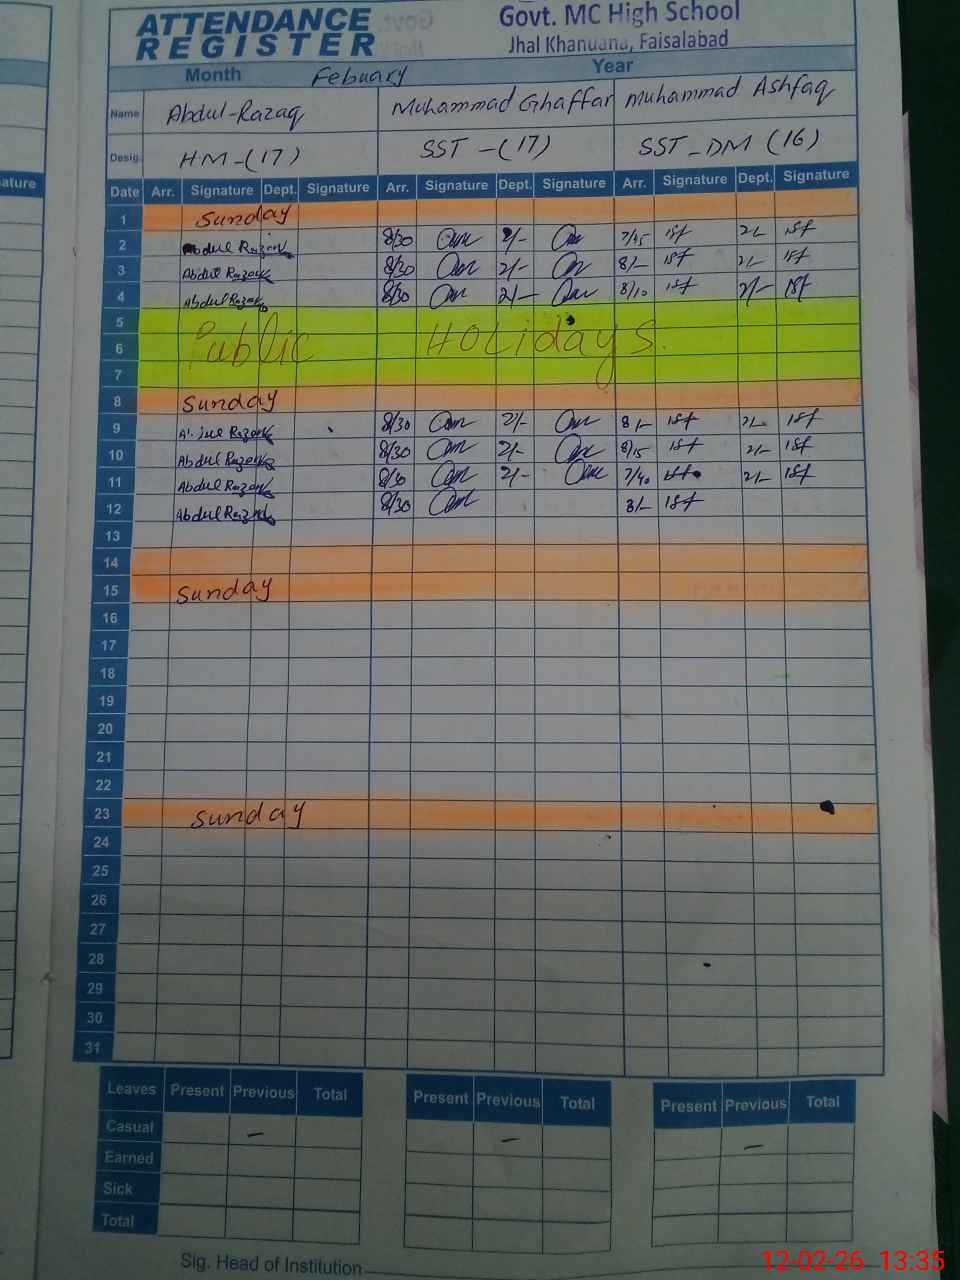 ATTENDANCE REGISTER
Govt. MC High School
Jhal Khanuana, Faisalabad
Month Febuary Year
Name Abdul-Razaq Muhammad Ghaffar Muhammad Ashfaq
Desig. HM-(17) SST-(17) SST-DM (16)
Date Arr. Signature Dept. Signature Arr. Signature Dept. Signature Arr. Signature Dept. Signature
1 Sunday
2 Abdul Razaq 8/30 2/- 7/45 2/-
3 Abdul Razaq 8/30 2/- 8/- 2/-
4 Abdul Razaq 8/30 2/- 8/10 2/-
5
6 Public Holidays.
7
8 Sunday
9 Razaq 8/30 2/- 8/- 2/-
10 Abdul Razaq 8/30 2/- 8/15 2/-
11 Abdul Razaq 8/30 2/- 7/40 2/-
12 Abdul Razaq 8/30 8/-
13
14
15 Sunday
16
17
18
19
20
21
22
23 Sunday
24
25
26
27
28
29
30
31
Leaves Present Previous Total Present Previous Total Present Previous Total
Casual – – –
Earned
Sick
Total
Sig. Head of Institution
12-02-26 13:35